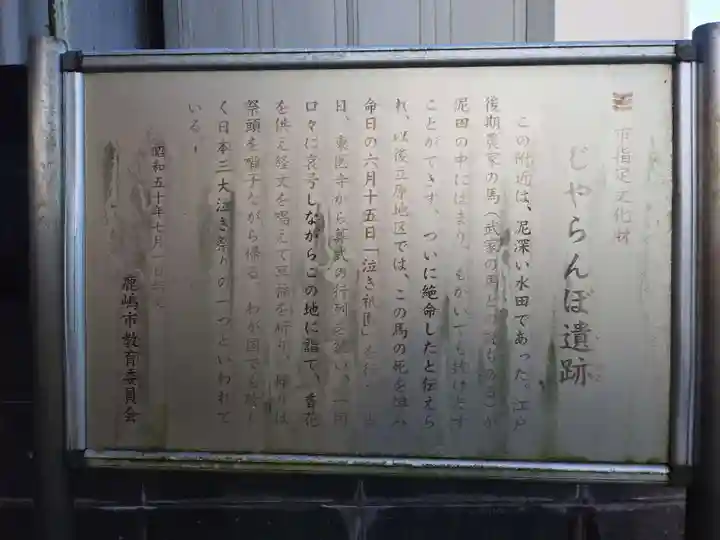 市指定文化財
じゃらんぼ遺跡
この附近は、泥深い水田であった。江戸
後期農家の馬(武家の馬と
泥田の中にはまり、もがいても抜け出す
ことができず、ついに絶命したと伝えら
れ、以後立原地区では、この馬の死を
命日の六月十五日「泣き祇園」を行
日、東 寺から葬式の行列を 、一同
口々に哀号しながらこの地に詣て、香花
を供え経文を唱えて冥福を祈り、帰りは
祭頭を囃子ながら帰る。わが国でも珍し
く日本三大泣き祭りの一つといわれて
いる。
昭和五十年七月一日
鹿嶋市教育委員会